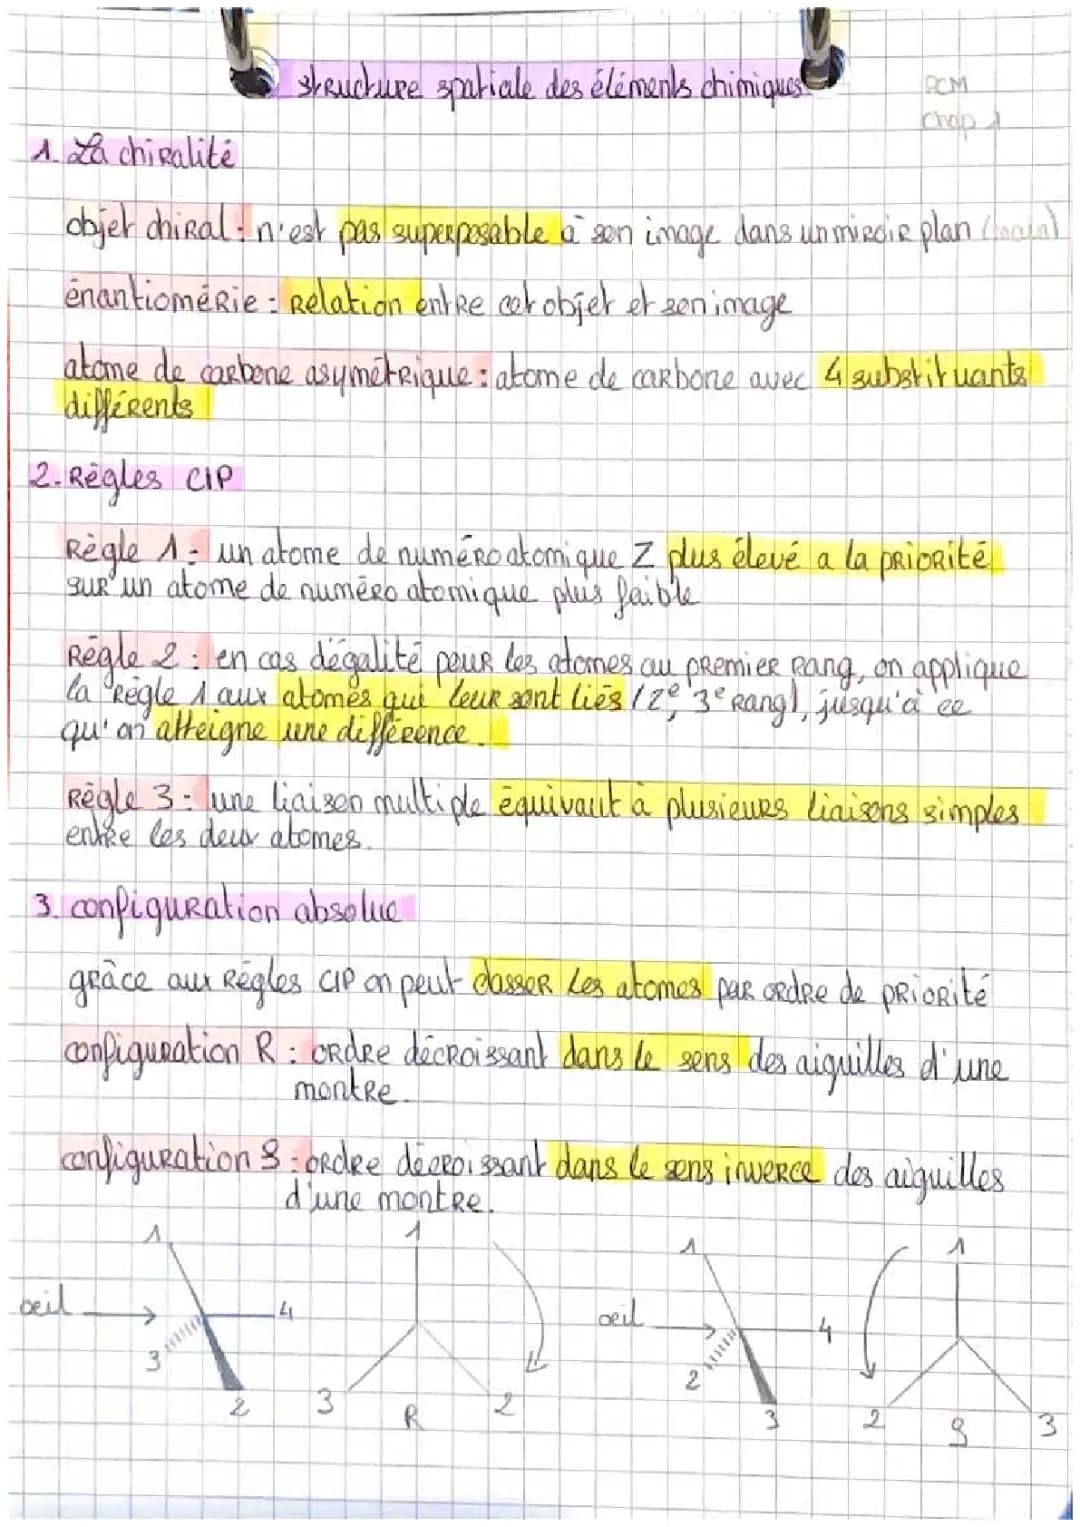 structure spatiale des éléments chimiques
PCM
Chap 1
1. La chiralité
objet chiral : n'est pas superposable à son image dans un miroir plan (main)
énantiomérie : Relation entre cet objet et son image
atome de carbone asymétrique : atome de carbone avec 4 substituants
différents
2. Règles CIP
Règle 1 : un atome de numéro atomique Z plus élevé a la priorité
sur un atome de numéro atomique plus faible
Règle 2 : en cas d'égalité pour les atomes au premier rang, on applique
la règle 1 aux atomes qui leur sont liés (2e, 3e rang), jusqu'à ce
qu'on atteigne une différence.
Règle 3 : une liaison multiple équivaut à plusieurs liaisons simples
entre les deux atomes.
3. configuration absolue
grâce aux Règles CIP on peut classer les atomes par ordre de priorité
configuration R : ordre décroissant dans le sens des aiguilles d'une
montre.
configuration S : ordre décroissant dans le sens inverce des aiguilles
d'une montre.
1 1 1 1
oeil 4 oeil 4
3 2 3 R 2
2 3 2 S 3